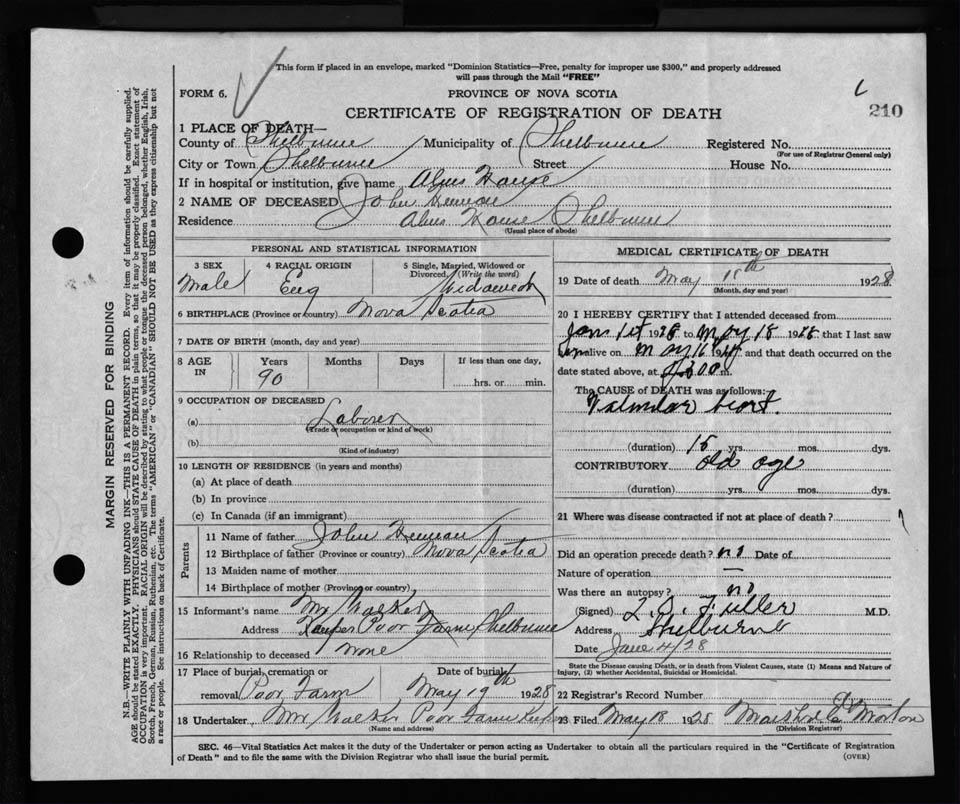 This form if placed in an envelope, marked "Dominion Statistics—Free, penalty for improper use $300," and properly addressed
will pass through the Mail "FREE"
FORM 6.
PROVINCE OF NOVA SCOTIA
CERTIFICATE OF REGISTRATION OF DEATH
210
1 PLACE OF DEATH—
County of Shelburne Municipality of Shelburne Registered No.
(For use of Registrar General only)
City or Town Shelburne Street House No.
If in hospital or institution, give name Alms House
2 NAME OF DECEASED John
Residence Alms House Shelburne
(Usual place of abode)
PERSONAL AND STATISTICAL INFORMATION
3 SEX Male
4 RACIAL ORIGIN Eng
5 Single, Married, Widowed or
Divorced. (Write the word)
6 BIRTHPLACE (Province or country) Nova Scotia
7 DATE OF BIRTH (month, day and year)
8 AGE IN Years 90 Months Days If less than one day,
hrs. or min.
9 OCCUPATION OF DECEASED
(a) Laborer
(Trade or occupation or kind of work)
(b)
(Kind of industry)
10 LENGTH OF RESIDENCE (in years and months)
(a) At place of death
(b) In province
(c) In Canada (if an immigrant)
Parents
11 Name of father John
12 Birthplace of father (Province or country) Nova Scotia
13 Maiden name of mother
14 Birthplace of mother (Province or country)
15 Informant's name Mr Walker
Address Keeper Poor Farm Shelburne
16 Relationship to deceased None
17 Place of burial, cremation or Date of burial
removal Poor Farm May 19th 1928
18 Undertaker, Mr Walker Poor Farm Keeper
(Name and address)
MEDICAL CERTIFICATE OF DEATH
19 Date of death May 1928
(Month, day and year)
20 I HEREBY CERTIFY that I attended deceased from
Jan 1st 1928 to May 18 1928 that I last saw
alive on May 16 and that death occurred on the
date stated above, at m.
The CAUSE of DEATH was as follows:
Valvular heart.
(duration) 15 yrs. mos. dys.
CONTRIBUTORY old age
(duration) yrs. mos. dys.
21 Where was disease contracted if not at place of death?
Did an operation precede death? no Date of
Nature of operation —
Was there an autopsy? no
(Signed) L. O. Fuller M.D.
Address Shelburne
Date June 4/28
State the Disease causing Death, or in death from Violent Causes, state (1) Means and Nature of
Injury, (2) whether Accidental, Suicidal or Homicidal.
22 Registrar's Record Number
23 Filed May 18 1928 Morton
(Division Registrar)
SEC. 46—Vital Statistics Act makes it the duty of the Undertaker or person acting as Undertaker to obtain all the particulars required in the "Certificate of Registration
of Death" and to file the same with the Division Registrar who shall issue the burial permit.
(OVER)
MARGIN RESERVED FOR BINDING
N.B.—WRITE PLAINLY WITH UNFADING INK—THIS IS A PERMANENT RECORD. Every item of information should be carefully supplied.
AGE should be stated EXACTLY. PHYSICIANS should STATE CAUSE OF DEATH in plain terms, so that it may be properly classified. Exact statement of
OCCUPATION is very important. RACIAL ORIGIN will be described by stating to what people or tongue the deceased person belonged, whether English, Irish,
Scotch, French, German, Russian, Ruthenian, etc. The terms "AMERICAN" or "CANADIAN" SHOULD NOT BE USED as they express citizenship but not
a race or people. See instructions on back of Certificate.